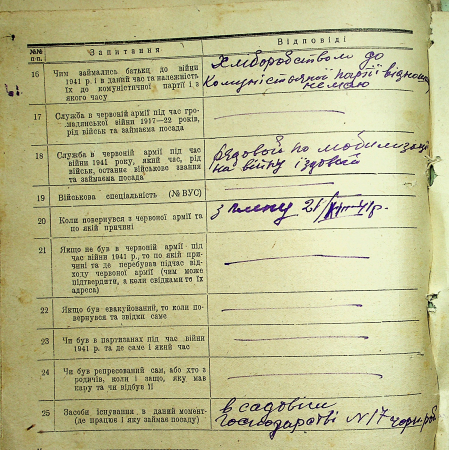 №№ п-п. Запитання Відповіді
16 Чим займались батьки до війни Хліборобством до
1941 р. і в даний час та належність Комуністичної партії відношен
їх до комуністичної партії і з немаю
якого часу
17 Служба в червоній армії під час гро-
мадянської війни 1917—22 років,
рід військ та займаєма посада
18 Служба в червоній армії під час Рядовой по мобилизації
війни 1941 року, який час, рід на війну їздовой
військ, останнє військове звання
та займаєма посада
19 Військова спеціальність (№ ВУС)
20 Коли повернувся з червоної армії та з плену 21/XII-41 р.
по якій причині
21 Якщо не був в червоній армії під
час війни 1941 р., то по якій при-
чині та де перебував підчас від-
ходу червоної армії (чим може
підтвердити, а коли свідками то їх
адреса)
22 Якщо був евакуйований, то коли по-
вернувся та звідки саме
23 Чи був в партизанах під час війни
1941 р. та де саме і який час
24 Чи був репресований сам, або хто з
родичів, коли і защо, яку мав
кару та чи відбув її
25 Засоби існування в даний момент- в садовім
(де працює і яку займає посаду) Господарстві №17 чорнроб